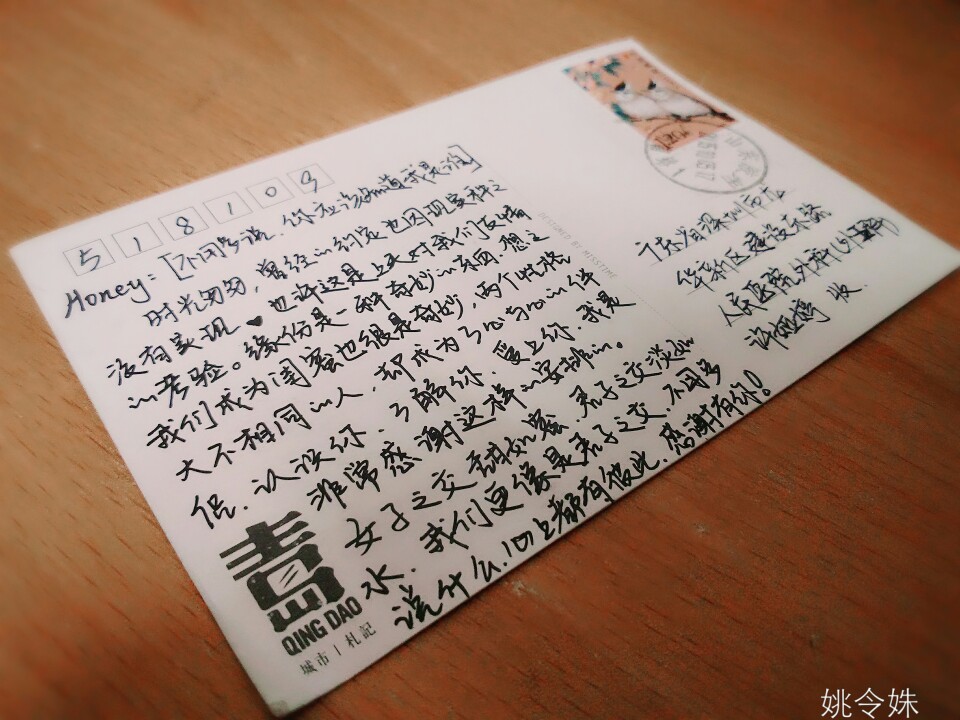 518109
Honey：[不用多说，你应该知道我是谁]
时光匆匆，曾经的约定也因现实种之
没有实现♥也许这是上天对我们友情
的考验。缘份是一种奇妙的东西，想之
我们成为闺蜜也很是奇妙，两个性格
大不相同的人，却成为了心与心的伴
侣，认识你，了解你，爱上你，我是
非常感谢这样的安排的。
女子之交甜如蜜，君子之交淡如
水，我们更像是君子之交，不用多
说什么，心上都有彼此，感谢有你！
广东省深圳市龙
华新区建设东路
人民医院外科
许 婷 收
DESIGNED BY MISSTIME
青岛
QING DAO
城市｜札記
姚令姝